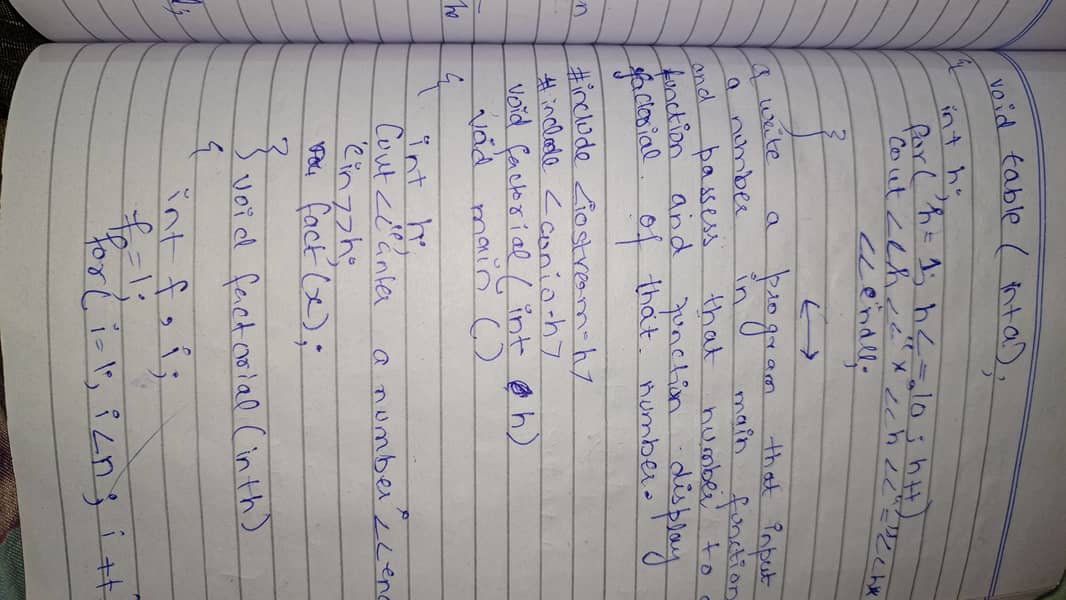 void table ( int a ) ;
{
int h ;
for ( h = 1 ; h <= 10 ; h++ )
cout << h << " x << h << " = " << h*
<< endl ;
}
Q write a program that input
a number in main function
and passess that number to a
function and function display
factorial of that number.
#include <iostream.h>
#include <conio.h>
void factorial ( int h )
void main ( )
{
int h ;
cout << "Enter a number << end
cin >> h ;
fact ( x ) ;
} void factorial ( int h )
{
int f , i ;
f = 1 ;
for ( i = 1 ; i < n ; i ++